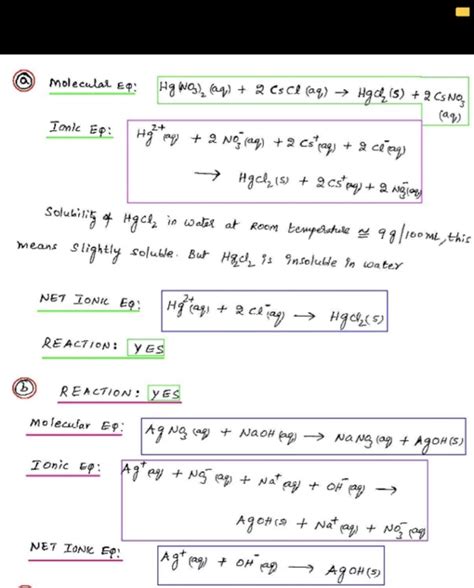 (a) Molecular Eq: Hg(NO₃)₂ (aq) + 2 CsCl (aq) → HgCl₂ (s) + 2 CsNO₃ (aq)
Ionic Eq: Hg²⁺(aq) + 2 NO₃⁻(aq) + 2 Cs⁺(aq) + 2 Cl⁻(aq)
→ HgCl₂ (s) + 2 Cs⁺(aq) + 2 NO₃⁻(aq)
Solubility of HgCl₂ in water at Room temperature ≃ 9 g/100 mL, this
means slightly soluble. But Hg₂Cl₂ is insoluble in water
NET IONIC Eq: Hg²⁺(aq) + 2 Cl⁻(aq) → HgCl₂(s)
REACTION: YES
(b) REACTION: YES
Molecular Eq: AgNO₃ (aq) + NaOH (aq) → NaNO₃ (aq) + AgOH(s)
Ionic Eq: Ag⁺(aq) + NO₃⁻(aq) + Na⁺(aq) + OH⁻(aq) →
AgOH(s) + Na⁺(aq) + NO₃⁻(aq)
NET IONIC Eq: Ag⁺(aq) + OH⁻(aq) → AgOH(s)